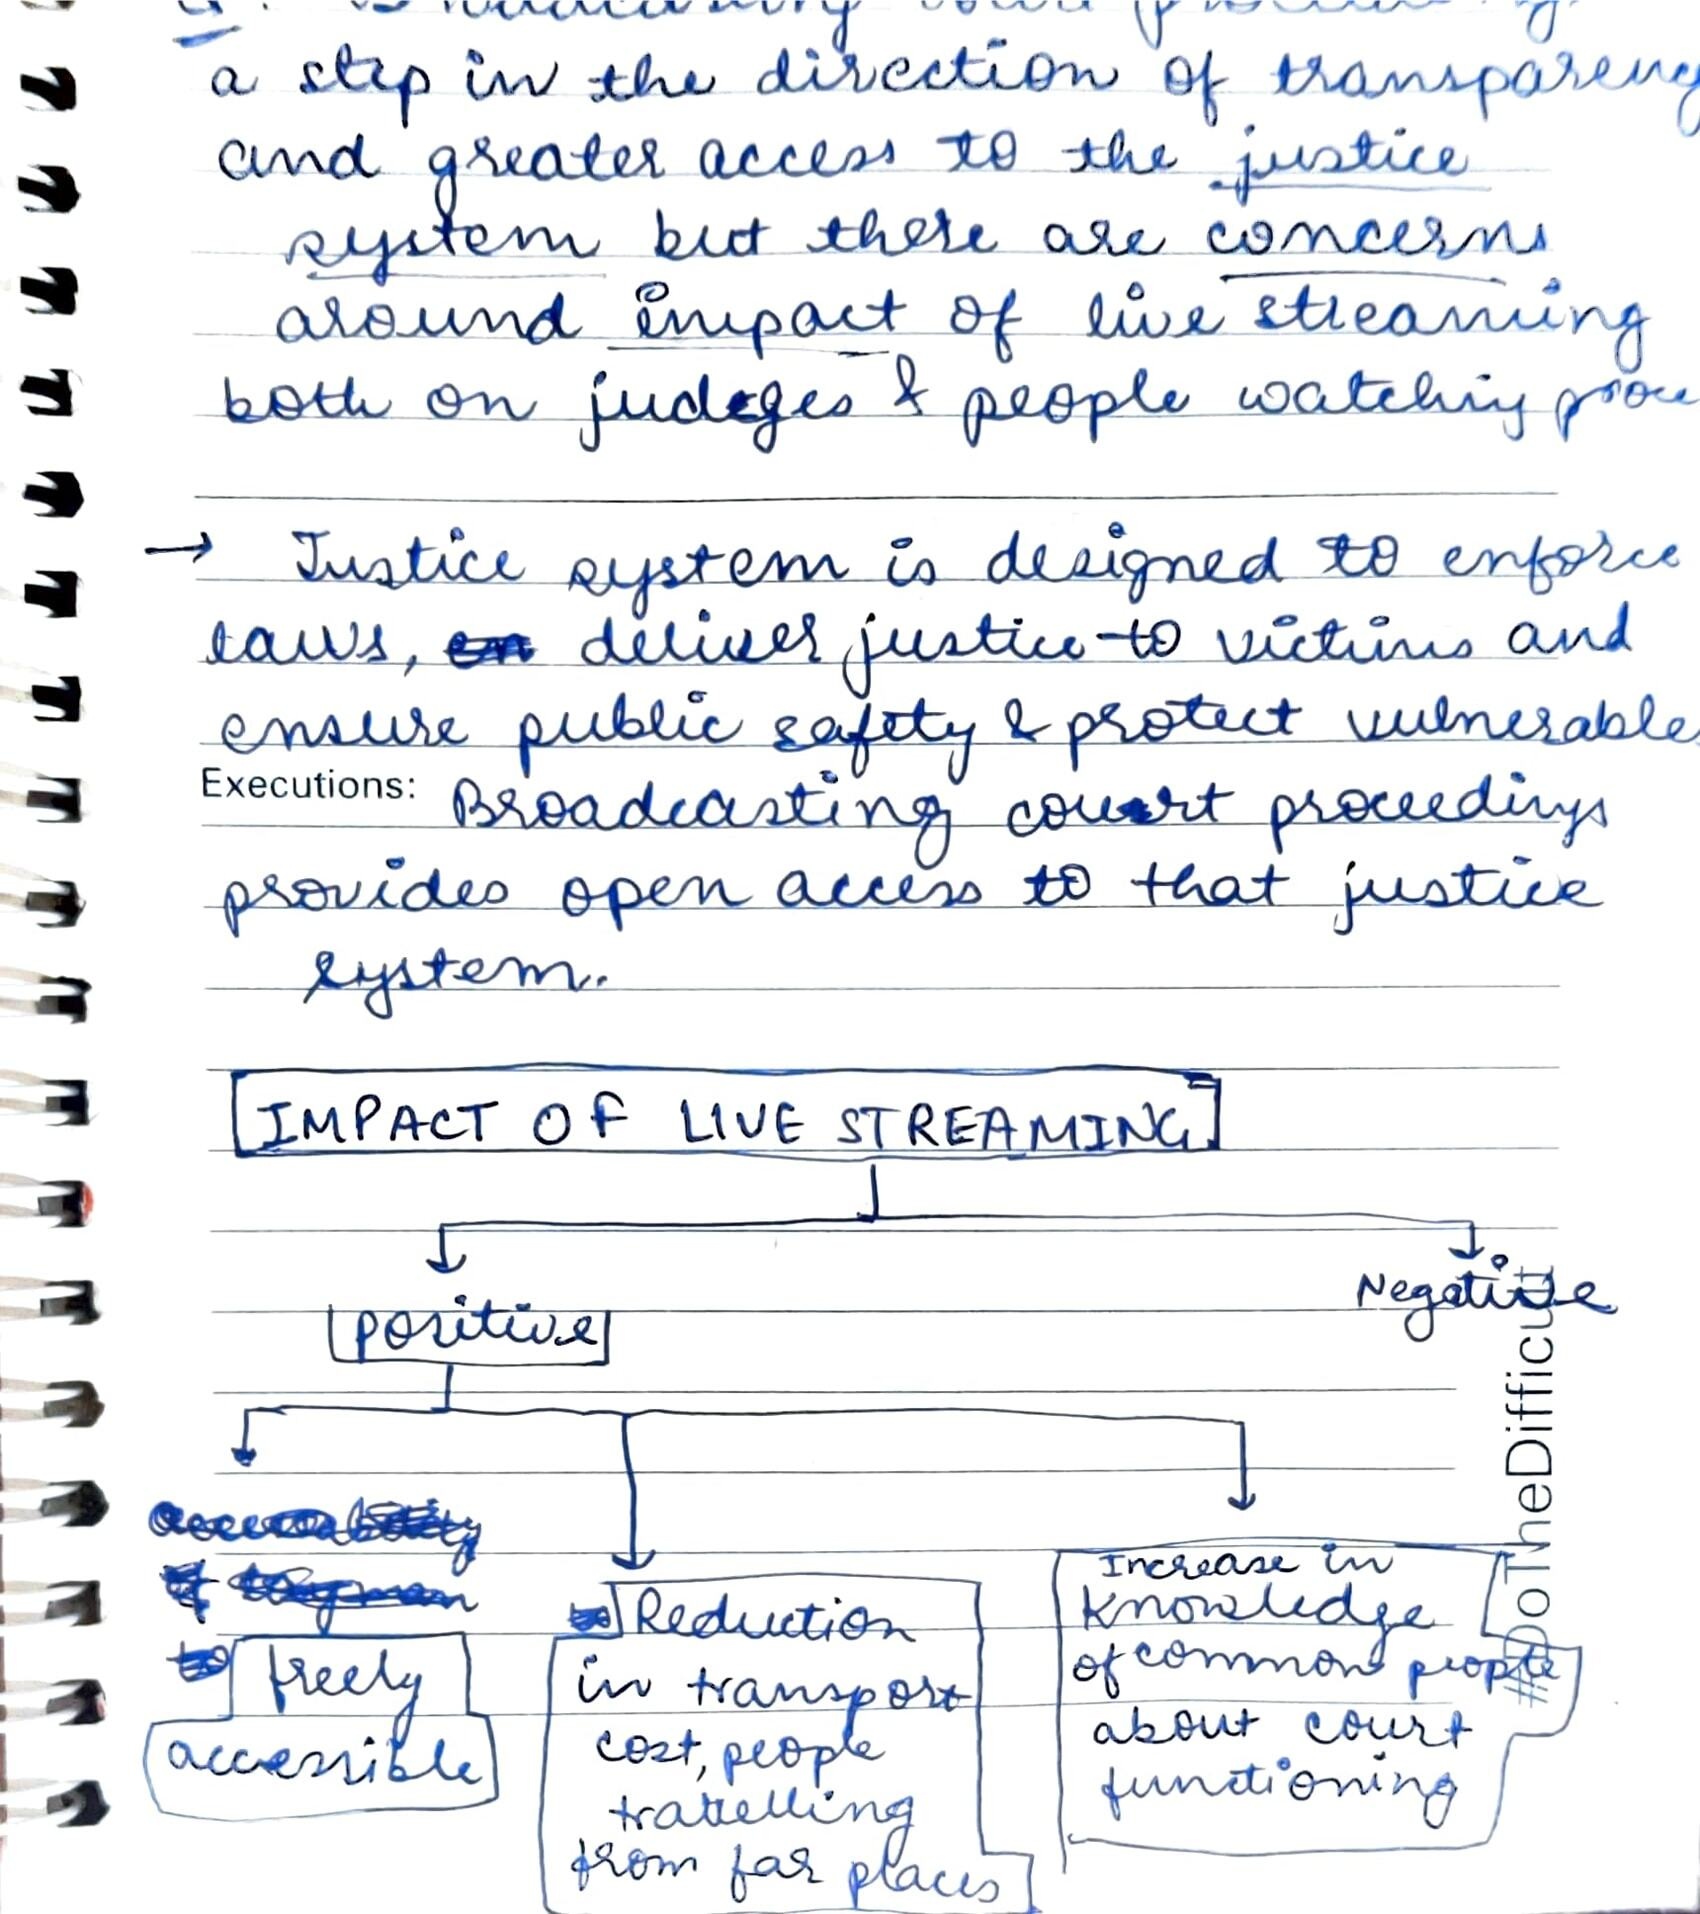 a step in the direction of transparency
and greater access to the justice
system but there are concerns
around impact of live streaming
both on judges & people watching
→ Justice system is designed to enforce
laws, deliver justice to victims and
ensure public safety & protect vulnerable.
Executions: Broadcasting court proceedings
provides open access to that justice
system.
IMPACT OF LIVE STREAMING
positive
Negative
freely
accessible
Reduction
in transport
cost, people
travelling
from far places
Increase in
knowledge
of common people
about court
functioning